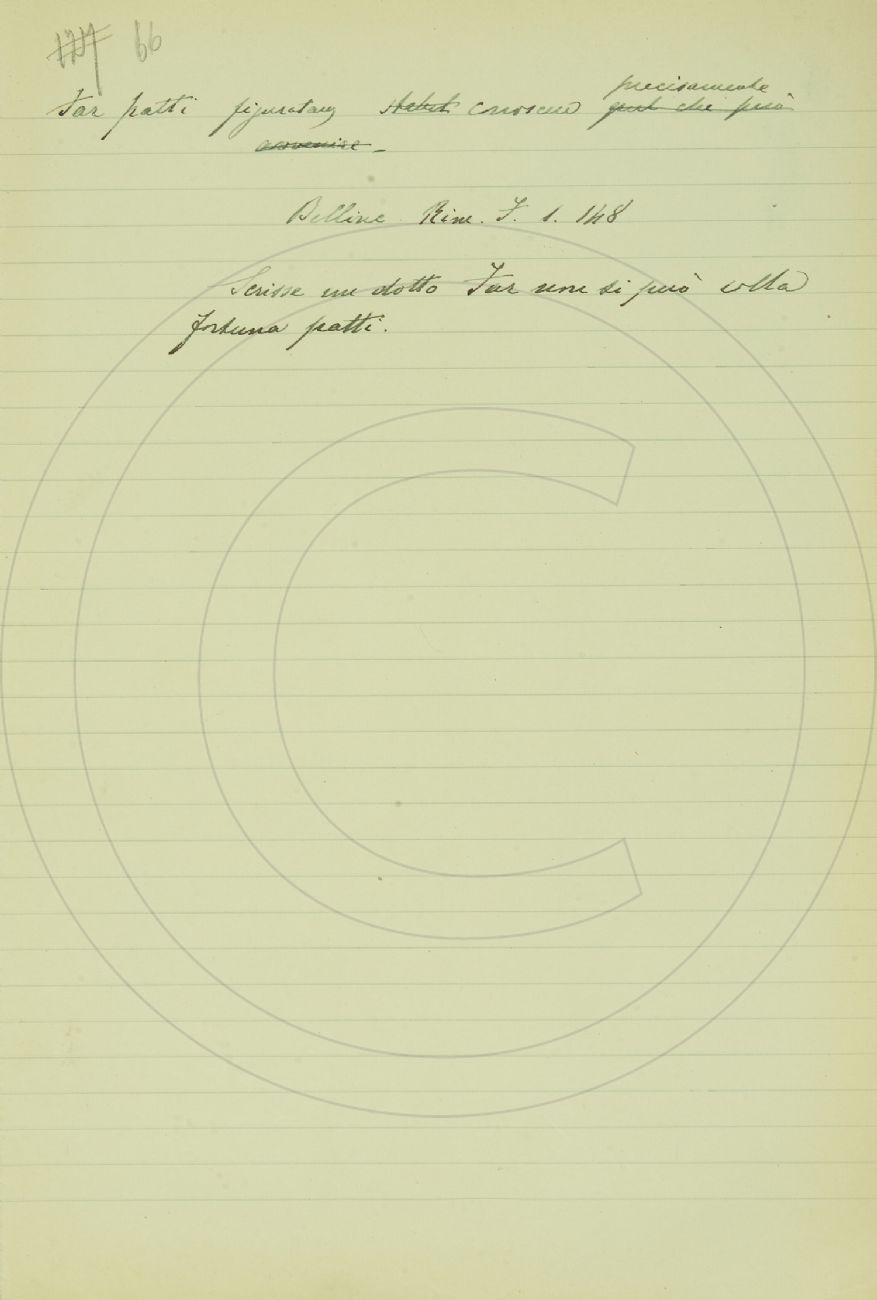 66
Far patti figuratam conoscere precisamente
quel che può
avvenire _
Belline Rim. T. 1. 148
Scrisse un dotto Far non si può colla
fortuna patti.